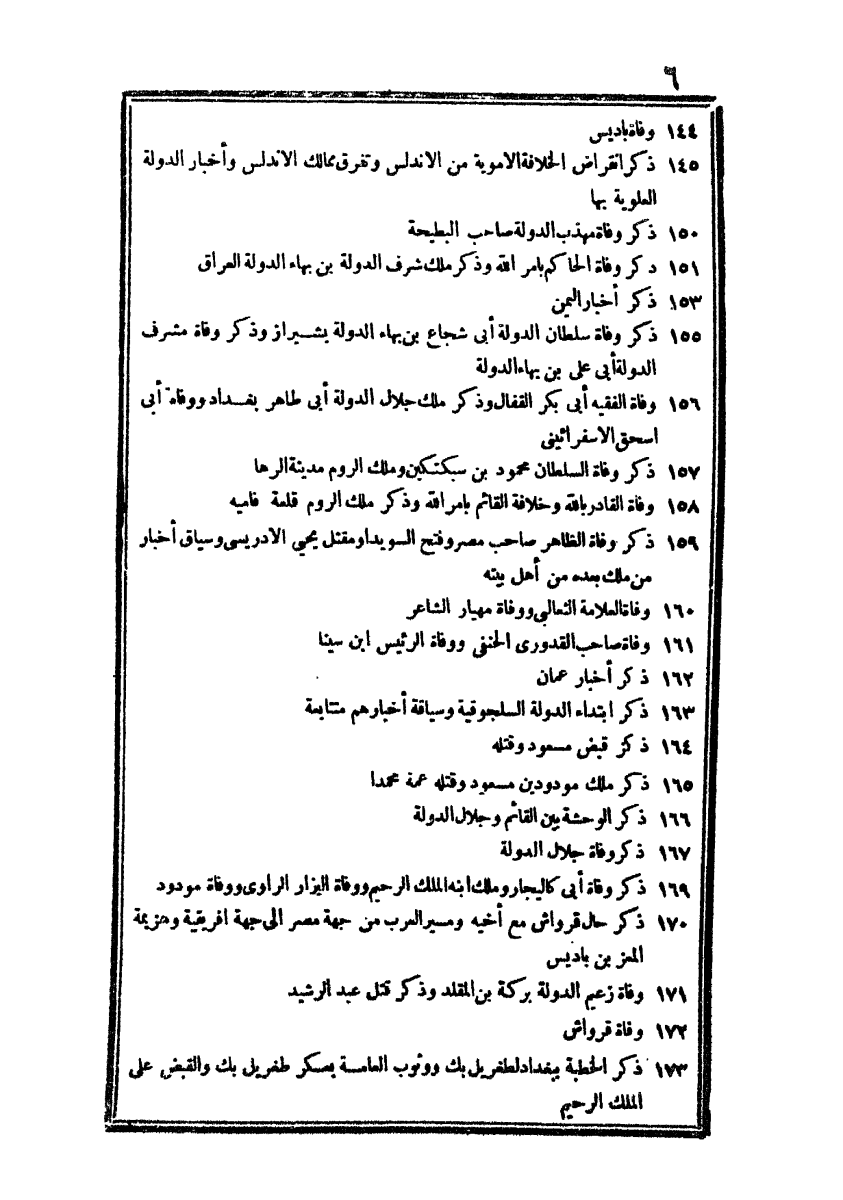 ٦
١٤٤ وفاة باديس
١٤٥ ذكر انقراض الخلافة الاموية من الاندلس وتفرق ممالك الاندلس وأخبار الدولة
العلوية بها
١٥٠ ذكر وفاة مهذب الدولة صاحب البطيحة
١٥١ دكر وفاة الحاكم بامر الله وذكر ملك شرف الدولة بن بهاء الدولة العراق
١٥٣ ذكر أخبار اليمن
١٥٥ ذكر وفاة سلطان الدولة أبى شجاع بن بهاء الدولة بشيراز وذكر وفاة مشرف
الدولة أبى على بن بهاء الدولة
١٥٦ وفاة الفقيه أبى بكر القفال وذكر ملك جلال الدولة أبى طاهر بغداد ووفاة أبى
اسحق الاسفرائينى
١٥٧ ذكر وفاة السلطان محمود بن سبكتكين وملك الروم مدينة الرها
١٥٨ وفاة القادر بالله وخلافة القائم بامر الله وذكر ملك الروم قلعة فاميه
١٥٩ ذكر وفاة الظاهر صاحب مصر وفتح السويدا ومقتل يحيي الادريسى وسياق أخبار
من ملك بعده من أهل بيته
١٦٠ وفاة العلامة الثعالبي ووفاة مهيار الشاعر
١٦١ وفاة صاحب القدورى الحنفى ووفاة الرئيس ابن سينا
١٦٢ ذكر أخبار عمان
١٦٣ ذكر ابتداء الدولة السلجوقية وسياقة أخبارهم متتابعة
١٦٤ ذكر قبض مسعود وقتله
١٦٥ ذكر ملك مودود بن مسعود وقتله عمة محمدا
١٦٦ ذكر الوحشة بين القائم وجلال الدولة
١٦٧ ذكر وفاة جلال الدولة
١٦٩ ذكر وفاة أبى كاليجار وملك ابنه الملك الرحيم ووفاة البزار الراوى ووفاة مودود
١٧٠ ذكر حال قرواش مع أخيه ومسير العرب من جهة مصر الى جهة افريقية وهزيمة
المعز بن باديس
١٧١ وفاة زعيم الدولة بركة بن المقلد وذكر قتل عبد الرشيد
١٧٢ وفاة قرواش
١٧٣ ذكر الخطبة ببغداد لطغريل بك ووثوب العامسة بعسكر طغريل بك والقبض على
الملك الرحيم